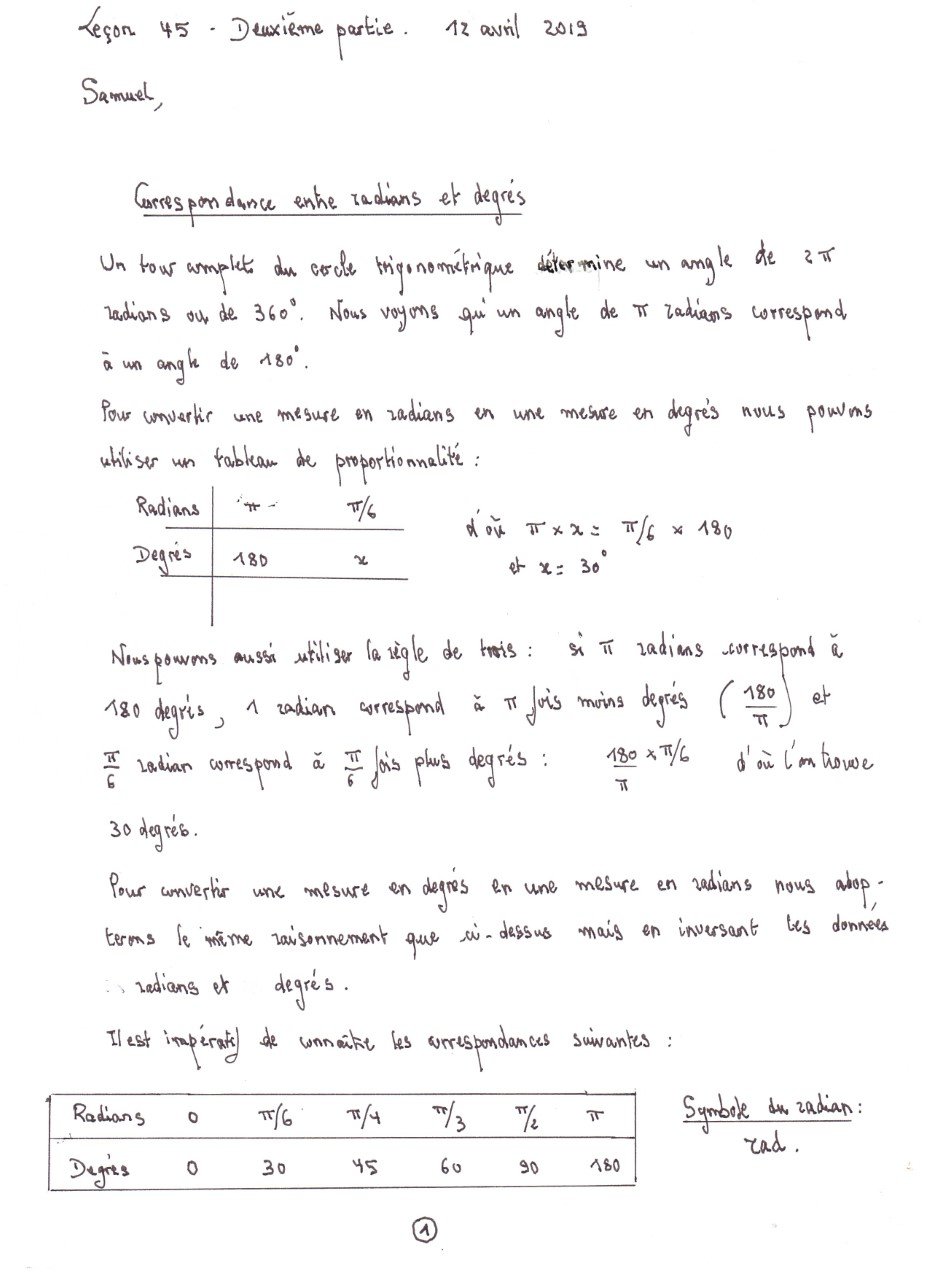 Leçon 45 - Deuxième partie. 12 avril 2019
Samuel,
Correspondance entre radians et degrés
Un tour complet du cercle trigonométrique détermine un angle de 2π
radians ou de 360°. Nous voyons qu'un angle de π radians correspond
à un angle de 180°.
Pour convertir une mesure en radians en une mesure en degrés nous pouvons
utiliser un tableau de proportionnalité :
Radians π π/6
d'où π × x = π/6 × 180
Degrés 180 x
et x = 30°
Nous pouvons aussi utiliser la règle de trois : si π radians correspond à
180 degrés, 1 radian correspond à π fois moins degrés (180/π) et
π/6 radian correspond à π/6 fois plus degrés : 180/π × π/6 d'où l'on trouve
30 degrés.
Pour convertir une mesure en degrés en une mesure en radians nous adop-
terons le même raisonnement que ci-dessus mais en inversant les données
radians et degrés.
Il est impératif de connaître les correspondances suivantes :
Radians 0 π/6 π/4 π/3 π/2 π
Degrés 0 30 45 60 90 180
Symbole du radian :
rad.
1